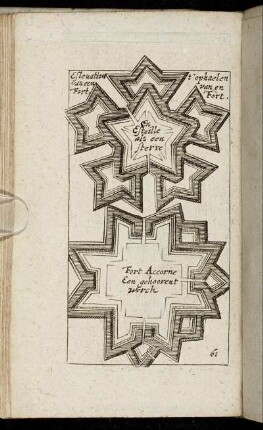 Eslevation
van een
Fort
t'ophaelen
van en
Fort.
En
Estoille
als een
sterre
Fort Accorne
Een gehoorent
Werck
61